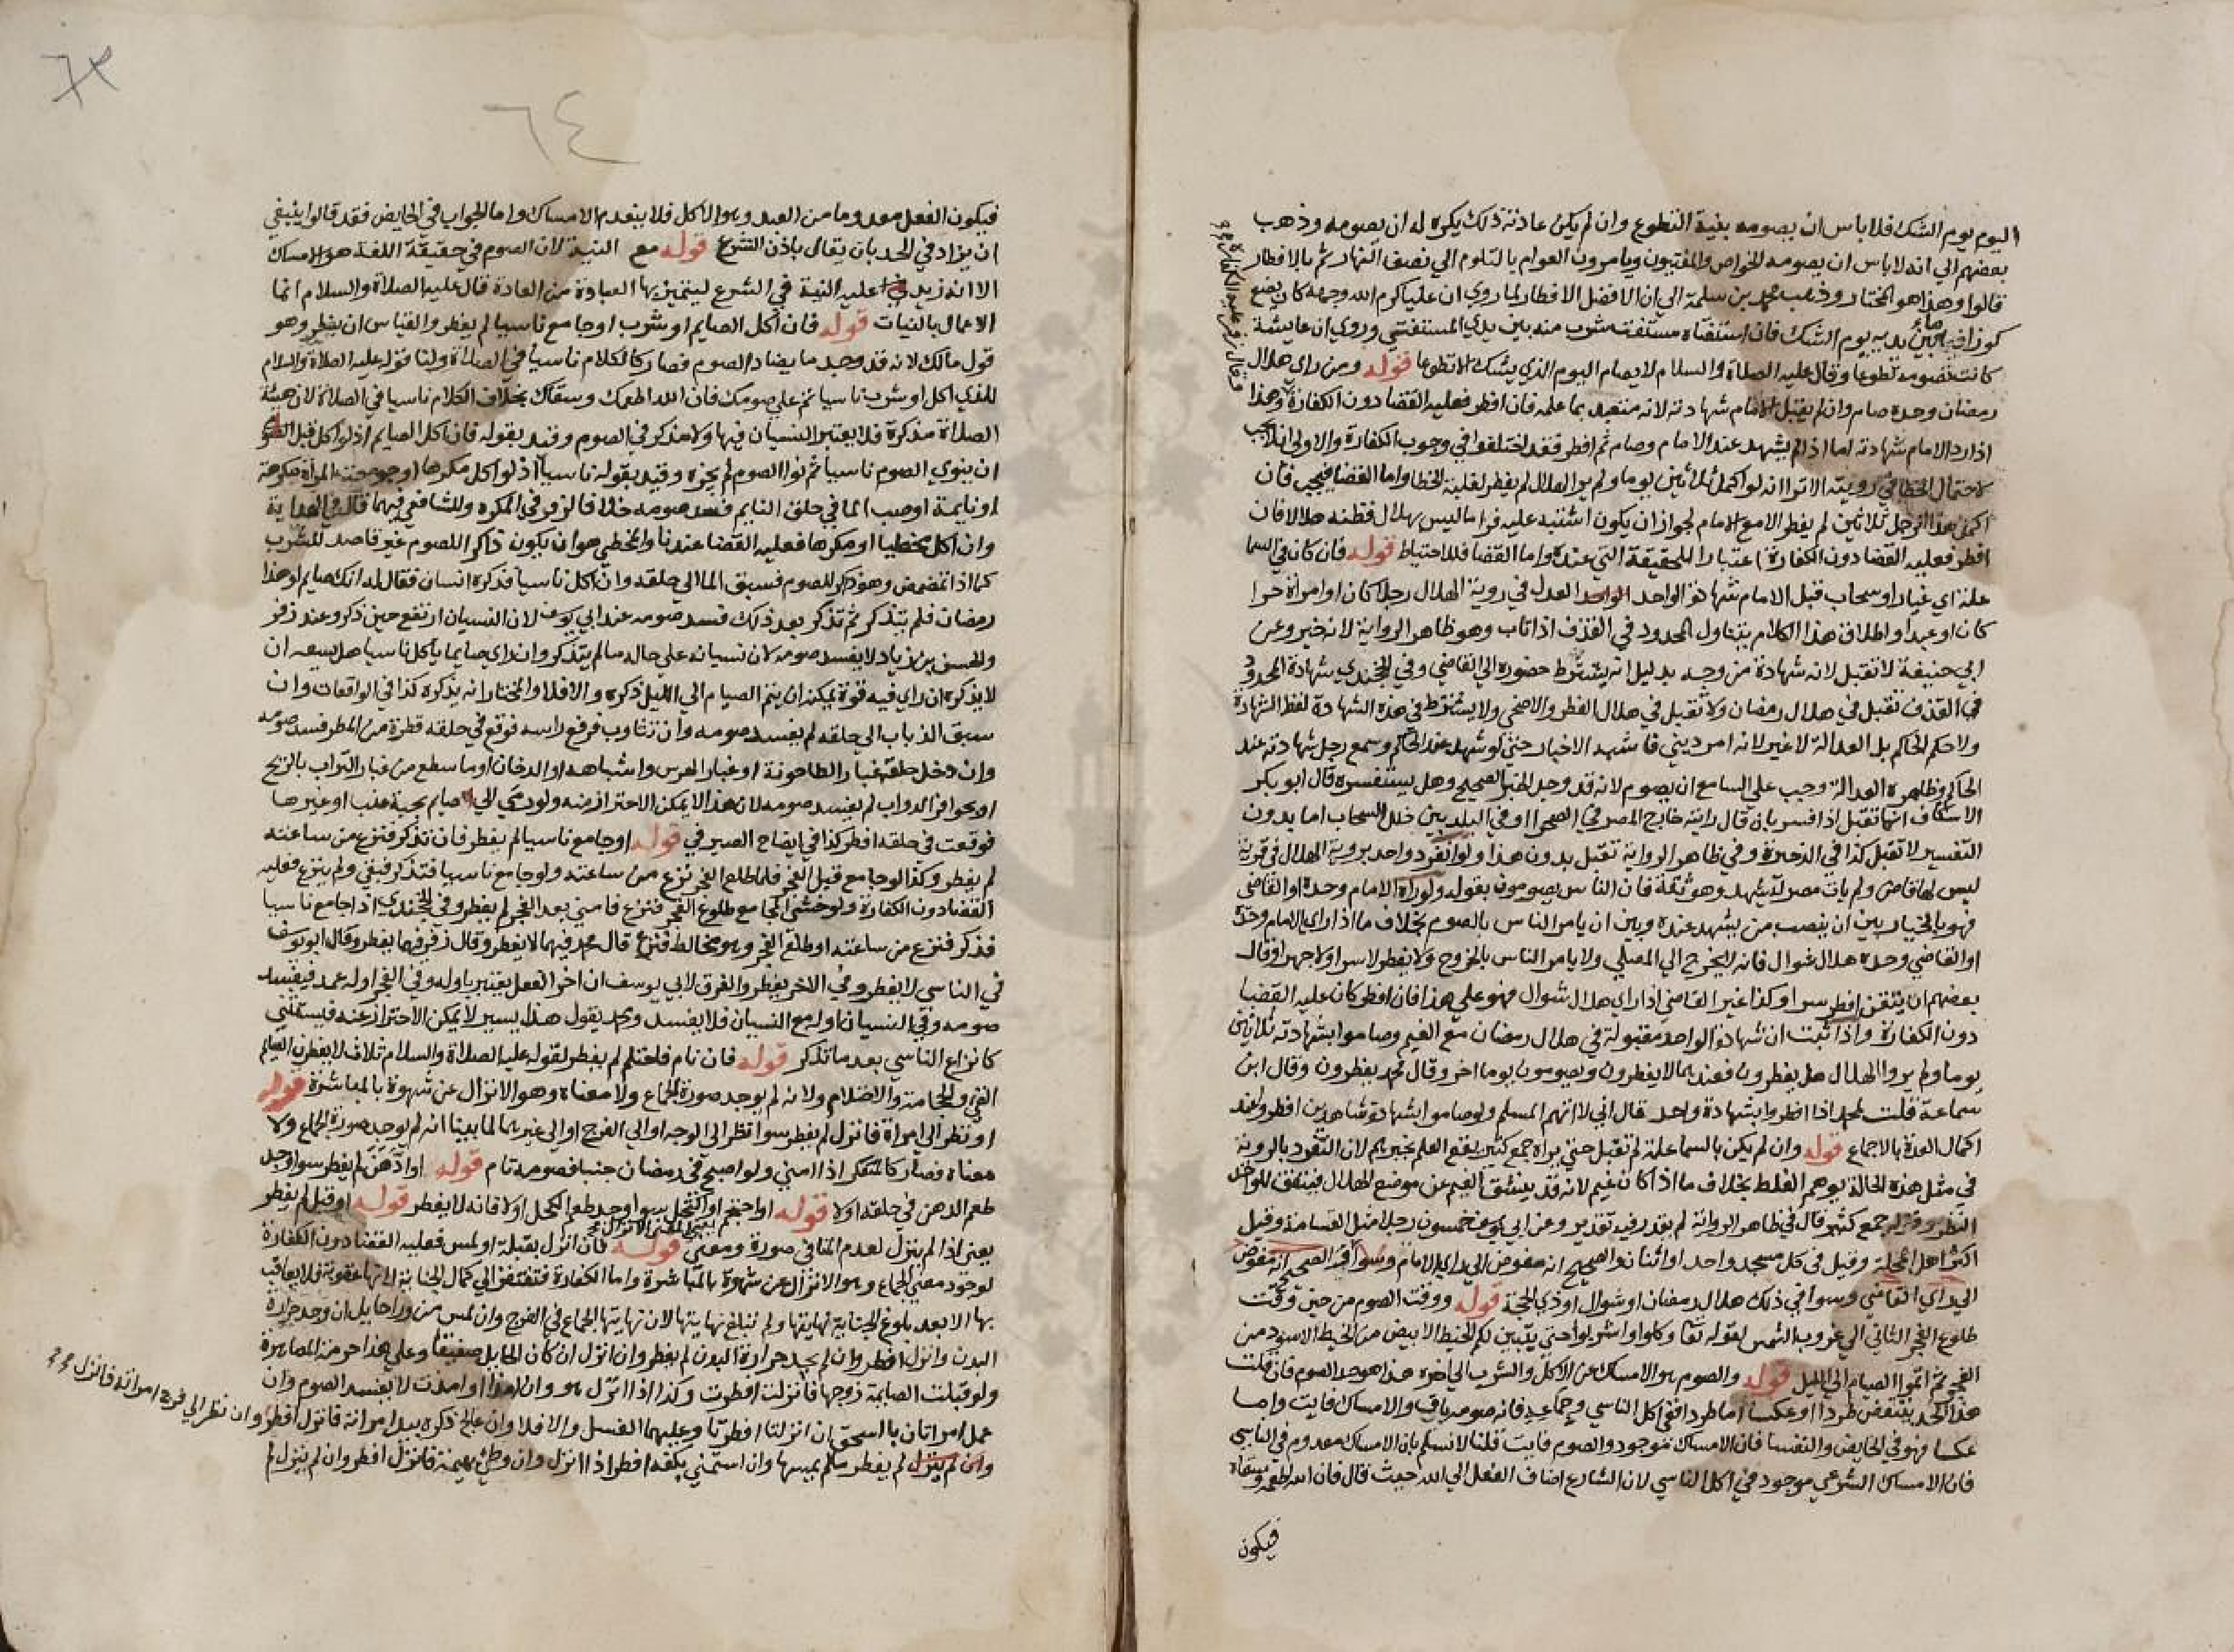 اليوم يوم الشك فلا باس ان يصومه بنية التطوع وان لم يكن عادته ذلك يكره له ان يصومه وذهب
بعضهم الي انه لا باس ان يصومه الخواص والمفتيون ويامرون العوام بالتلوم الي نصف النهار ثم بالافطار
قالوا وهذا هو المختار وذهب محمد بن سلمة الي ان الافضل الافطار لما روي ان عليا كرم الله وجهه كان يضع
كوزا فيه ماء بين يديه يوم الشك فان استفتاه مستفت شرب منه بين يدي المستفتي وروي ان عايشة
كانت تصومه تطوعا وقال عليه الصلاة والسلام لا يصام اليوم الذي يشك الا تطوعا قوله ومن راي هلال
رمضان وحده صام وان لم يقبل الامام شهادته لانه متعبد بما علمه فان افطر فعليه القضا دون الكفارة وهذا
اذا رد الامام شهادته اما اذا لم يشهد عند الامام وصام ثم افطر فقد اختلفوا في وجوب الكفارة والاولي
لاحتمال الخطا في رويته الا تري انه لو اكمل ثلاثين يوما ولم ير الهلال لم يفطر لغلبة الخطا واما القضا فيجب فان
اكمل هذا الرجل ثلاثين لم يفطر الا مع الامام لجواز ان يكون اشتبه عليه فراي ما ليس بهلال فظنه هلالا فان
افطر فعليه القضا دون الكفارة اعتبارا للحقيقة التي عنده واما القضا فللاحتياط قوله فان كان في السما
علة اي غبار او سحاب قبل الامام شهادة الواحد العدل في روية الهلال رجلا كان او امراة حرا
كان او عبدا واطلاق هذا الكلام يتناول المحدود في القذف اذا تاب وهو ظاهر الرواية لانه خبر وعن
ابي حنيفة لا تقبل لانه شهادة من وجه بدليل انه يشترط حضوره الي القاضي وفي الخجندي شهادة المحدود
في القذف تقبل في هلال رمضان ولا تقبل في هلال الفطر والاضحي ولا يشترط في هذه الشهادة لفظ الشهادة
ولا حكم الحاكم بل العدالة لا غير لانه امر ديني فاشبه الاخبار حتي لو شهد عند الحاكم وسمع رجل شهادته عند
الحاكم وظاهره العدالة وجب علي السامع ان يصوم لانه قد وجد الخبر الصحيح وهل يستفسره قال ابو بكر
الاسكاف انما تقبل اذا فسر بان قال رايته خارج المصر في الصحرا او في البلد بين خلل السحاب اما بدون
التفسير لا تقبل كذا في الذخيرة وفي ظاهر الرواية تقبل بدون هذا ولو انفرد واحد بروية الهلال في قرية
ليس لها قاض ولم يات مصر ليشهد وهو ثقة فان الناس يصومون بقوله ولو راه الامام وحده او القاضي
فهو بالخيار بين ان ينصب من يشهد عنده وبين ان يامر الناس بالصوم بخلاف ما اذا راي الامام وحده
او القاضي وحده هلال شوال فانه لا يخرج الي المصلي ولا يامر الناس بالخروج ولا يفطر لا سرا ولا جهرا وقال
بعضهم ان تيقن افطر سرا وكذا غير القاضي اذا راي هلال شوال فهو علي هذا فان افطر كان عليه القضا
دون الكفارة واذا ثبت ان شهادة الواحد مقبولة في هلال رمضان مع الغيم وصاموا بشهادته ثلاثين
يوما ولم يروا الهلال هل يفطرون فعندهما لا يفطرون ويصومون يوما اخر وقال محمد يفطرون وقال ابن
سماعة قلت لمحمد اذا افطروا بشهادة واحد قال اني لا اتهم المسلم ولو صاموا بشهادة شاهدين افطروا عند
اكمال العدة بالاجماع قوله وان لم يكن بالسما علة لم تقبل حتي يراه جمع كثير يقع العلم بخبرهم لان التفرد بالروية
في مثل هذه الحالة يوهم الغلط بخلاف ما اذا كان غيم لانه قد ينشق الغيم عن موضع الهلال فيتفق للواحد
النظر وقوله جمع كثير قال في ظاهر الرواية لم يقدر فيه تقدير وعن ابي يوسف خمسون رجلا مثل القسامة وقيل
اكثر اهل المحلة وقيل في كل مسجد واحد او اثنان والصحيح انه مفوض الي راي الامام
الي راي القاضي وسوا في ذلك هلال رمضان او شوال او ذي الحجة قوله ووقت الصوم من حين وقت
طلوع الفجر الثاني الي غروب الشمس لقوله تعا وكلوا واشربوا حتي يتبين لكم الخيط الابيض من الخيط الاسود من
الفجر ثم اتموا الصيام الي الليل قوله والصوم هو الامساك عن الاكل والشرب الي اخره هذا هو حد الصوم فان قلت
هذا الحد ينتقض طردا او عكسا اما طردا ففي اكل الناسي وجماعه فانه صومه باق والامساك فايت واما
عكسا فهو في الحايض والنفسا فان الامساك موجود والصوم فايت قلنا لا نسلم بان الامساك معدوم في الناسي
فان الامساك الشرعي موجود في اكل الناسي لان الشارع اضاف الفعل الي الله حيث قال فان الله اطعمه وسقاه
فيكون
٦٤
فيكون الفعل معدوما من العبد وهو الاكل فلا ينعدم الامساك واما الجواب في الحايض فقد قالوا ينبغي
ان يزاد في الحد بان يقال باذن الشرع قوله مع النية لان الصوم في حقيقة اللغة هو الامساك
الا انه زيد عليه النية في الشرع ليتميز بها العبادة من العادة قال عليه الصلاة والسلام انما
الاعمال بالنيات قوله فان اكل الصايم او شرب او جامع ناسيا لم يفطر والقياس ان يفطر وهو
قول مالك لانه قد وجد ما يضاد الصوم فصار كالكلام ناسيا في الصلاة ولنا قوله عليه الصلاة والسلام
للذي اكل او شرب ناسيا تم علي صومك فان الله اطعمك وسقاك بخلاف الكلام ناسيا في الصلاة لان هيئة
الصلاة مذكرة فلا يعتبر النسيان فيها ولا مذكر في الصوم وقيد بقوله فان اكل الصايم اذ لو اكل قبل
ان ينوي الصوم ناسيا ثم نوا الصوم لم يجزه وقيد بقوله ناسيا اذ لو اكل مكرها او جومعت المراة مكرهة
او نايمة او صب الما في حلق النايم فسد صومه خلافا لزفر في المكره وللشافعي فيهما قال في الهداية
وان اكل مخطيا او مكرها فعليه القضا عندنا والمخطي هو ان يكون ذاكرا للصوم غير قاصد للشرب
كما اذا تمضمض وهو ذاكر للصوم فسبق الما الي حلقه وان اكل ناسيا فذكره انسان فقال له انك صايم او هذا
رمضان فلم يتذكر ثم تذكر بعد ذلك فسد صومه عند ابي يوسف لان النسيان ارتفع حين ذكر وعند زفر
والحسن بن زياد لا يفسد صومه لان نسيانه علي حاله ما لم يتذكر وان راي صايما ياكل ناسيا هل يسعه ان
لا يذكره ان راي فيه قوة يمكنه ان يتم الصيام الي الليل ذكره والا فلا والمختار انه يذكره كذا في الواقعات وان
سبق الذباب الي حلقه لم يفسد صومه وان تثاوب فرفع راسه فوقع في حلقه قطرة من المطر فسد صومه
وان دخل حلقه غبار الطاحونة او غبار العدس واشباهه او الدخان او ما سطع من غبار التراب بالريح
او بحوافر الدواب لم يفسد صومه لان هذا لا يمكن الاحتراز منه ولو رمي الي صايم بحبة عنب او غيرها
فوقعت في حلقه افطر كذا في ايضاح الصيرفي قوله او جامع ناسيا لم يفطر فان تذكر فنزع من ساعته
لم يفطر وكذا لو جامع قبل الفجر فلما طلع الفجر نزع من ساعته ولو جامع ناسيا فتذكر فبقي ولم ينزع فعليه
القضا دون الكفارة ولو خشي الجامع طلوع الفجر فنزع فامني بعد الفجر لم يفطر وفي الخجندي اذا جامع ناسيا
فذكر فنزع من ساعته او طلع الفجر وهو مخالط فنزع قال محمد فيهما لا يفطر وقال زفر فيهما يفطر وقال ابو يوسف
في الناسي لا يفطر وفي الاخر يفطر والفرق لابي يوسف ان اخر الفعل يعتبر باوله وفي الفجر اوله عمد فيفسد
صومه وفي النسيان اوله مع النسيان فلا يفسد ومحمد يقول هذا يسير لا يمكن الاحتراز عنه فيستثني
كانزاع الناسي بعد ما تذكر قوله فان نام فاحتلم لم يفطر لقوله عليه الصلاة والسلام ثلاث لا يفطرن الصايم
القي والحجامة والاحتلام ولانه لم يوجد صورة الجماع ولا معناه وهو الانزال عن شهوة بالمباشرة قوله
او نظر الي امراة فانزل لم يفطر سوا نظر الي الوجه او الي الفرج او الي غيرهما لما بينا انه لم يوجد صورة الجماع ولا
معناه فصار كالمتفكر اذا امني ولو اصبح في رمضان جنبا فصومه تام قوله او ادهن لم يفطر سوا وجد
طعم الدهن في حلقه او لا قوله او احتجم او اكتحل سوا وجد طعم الكحل او لا فانه لا يفطر قوله او قبل لم يفطر
يعني اذا لم ينزل لعدم المنافي صورة ومعني قوله فان انزل بقبلة او لمس فعليه القضا دون الكفارة
لوجود معني الجماع وهو الانزال عن شهوة بالمباشرة واما الكفارة فتفتقر الي كمال الجناية لانها عقوبة فلا يعاقب
بها الا بعد بلوغ الجناية نهايتها ولم تبلغ نهايتها لان نهايتها الجماع في الفرج وان لمس من ورا حايل ان وجد حرارة
البدن وانزل افطر وان لم يجد حرارة البدن لم يفطر وان انزل ان كان الحايل صفيقا وعلي هذا حرمة المصاهرة
ولو قبلت الصايمة زوجها فانزلت افطرت وكذا اذا انزل هو وان امذا او امذت لا يفسد الصوم وان
عمل امراتان بالسحق ان انزلتا افطرتا وعليهما الغسل والا فلا وان عالج ذكره بيد امراته فانزل افطر وان نظر الي فرج امراته فانزل
وان لم ينزل لم يفطر ما لم يمسها وان استمني بكفه افطر اذا انزل وان وطئ بهيمة فانزل افطر وان لم ينزل لم